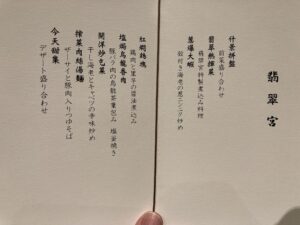 翡翠宮
什景拼盤
前菜盛り合わせ
翡翠熱燴菜
翡翠宮特製煮込み料理
葱爆大蝦
殻付き海老の葱ニンニク炒め
紅燜鶏塊
鶏肉と栗子の醤油煮込み
塩焗烏龍香肉
豚バラ肉の烏龍茶葉包み 塩釜焼き
開洋炒包菜
干し海老とキャベツの辛味炒め
搾菜肉絲湯麺
ザーサイと豚肉入りつゆそば
今天甜集
デザート盛り合わせ